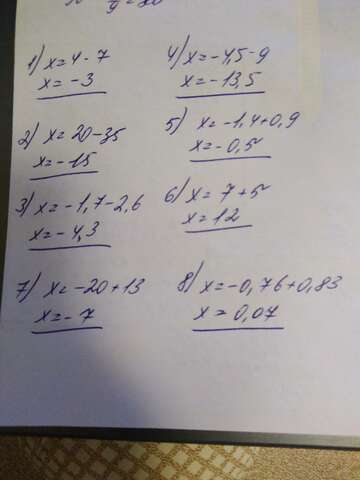 1) x=4-7
x=-3
2) x=20-35
x=-15
3) x=-1,7-2,6
x=-4,3
7) x=-20+13
x=-7
4) x=-4,5-9
x=-13,5
5) x=-1,4+0,9
x=-0,5
6) x=7+5
x=12
8) x=-0,76+0,83
x=0,07